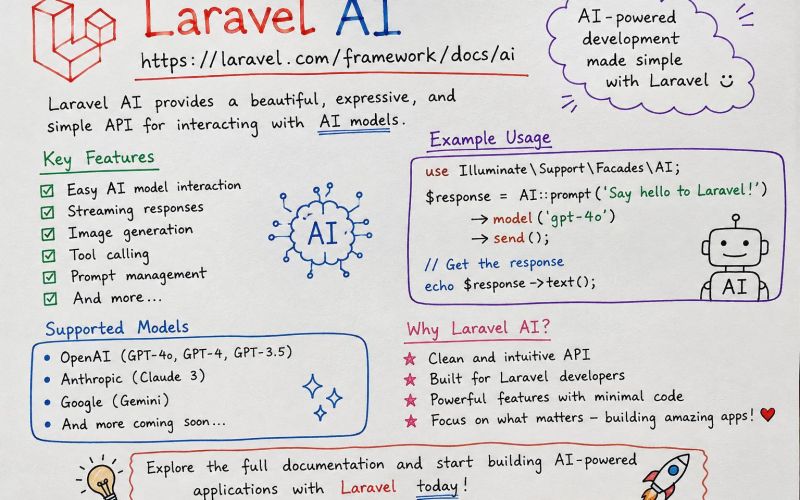 Laravel AI
https://laravel.com/framework/docs/ai
AI-powered
development
made simple
with Laravel
Laravel AI provides a beautiful, expressive, and
simple API for interacting with AI models.
Key Features
Easy AI model interaction
Streaming responses
Image generation
Tool calling
Prompt management
And more...
AI
Example Usage
use Illuminate\Support\Facades\AI;
$response = AI::prompt('Say hello to Laravel!')
→ model('gpt-4o')
→ send();
// Get the response
echo $response->text();
AI
Supported Models
• OpenAI (GPT-4o, GPT-4, GPT-3.5)
• Anthropic (Claude 3)
• Google (Gemini)
• And more coming soon...
Why Laravel AI?
Clean and intuitive API
Built for Laravel developers
Powerful features with minimal code
Focus on what matters – building amazing apps!
Explore the full documentation and start building AI-powered
applications with Laravel today!